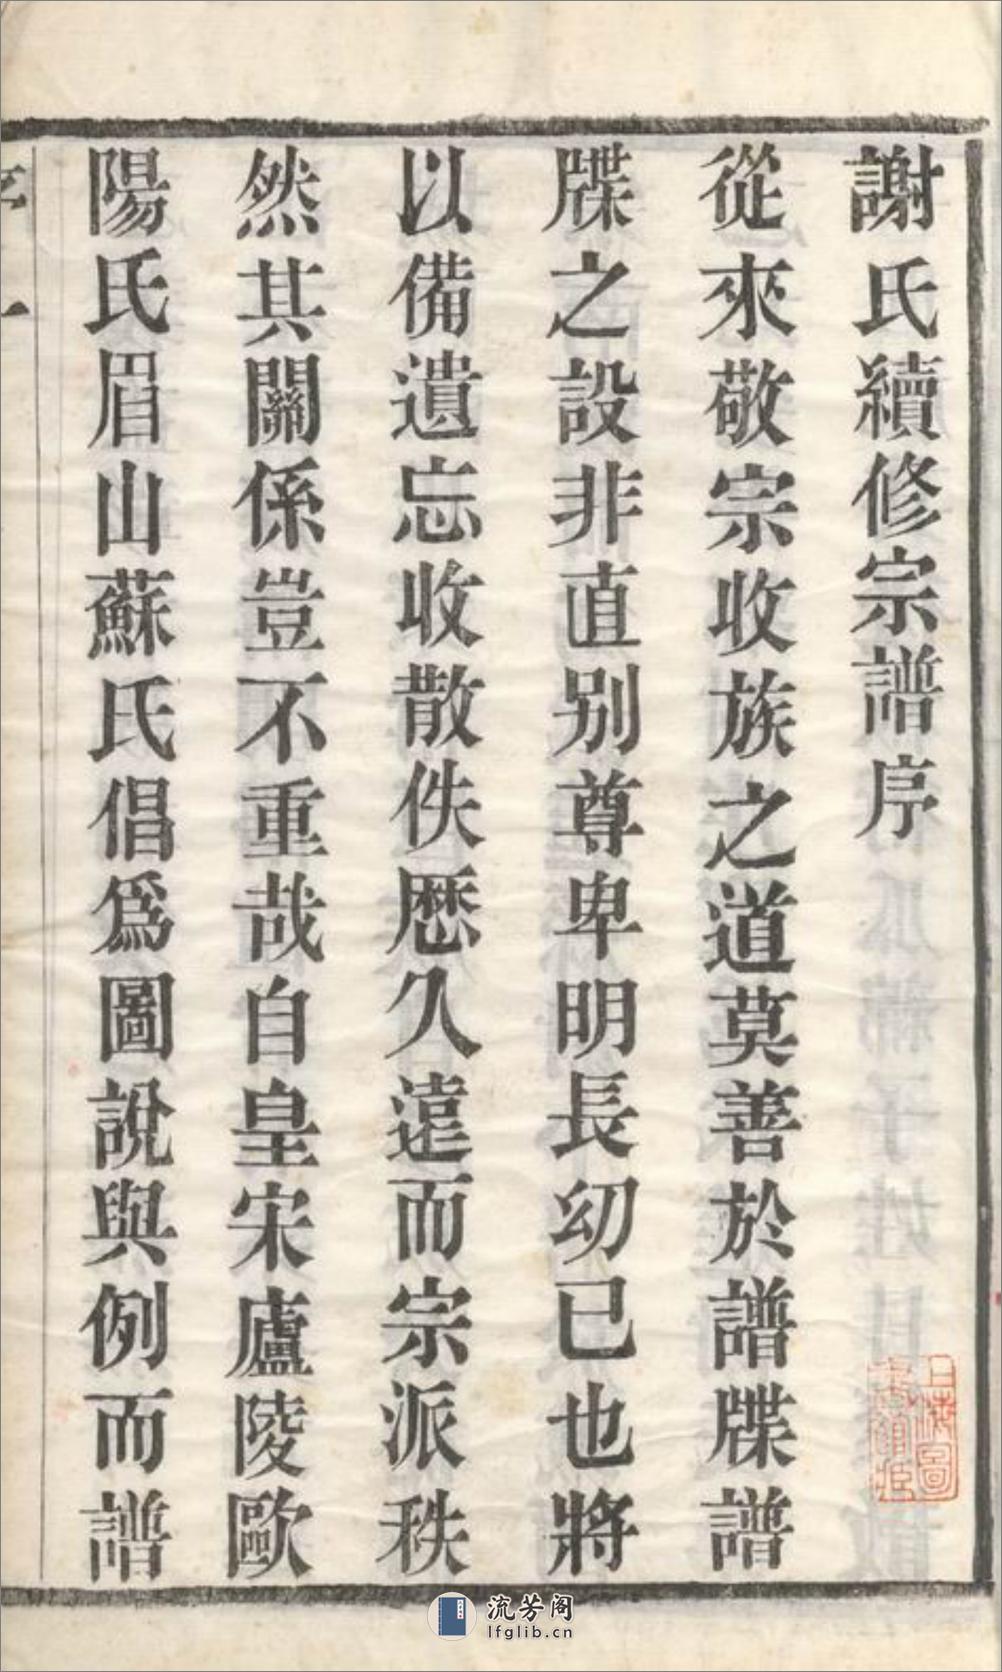 謝氏續修宗譜序
從來敬宗收族之道莫善於譜牒譜
牒之設非直别尊卑明長幼已也將
以備遺忘收散佚歷久遠而宗派秩
然其關係豈不重哉自皇宋廬陵歐
陽氏眉山蘇氏倡爲圖說與例而譜
序 一
上海圖書館藏
流芳阁
lfglib.cn